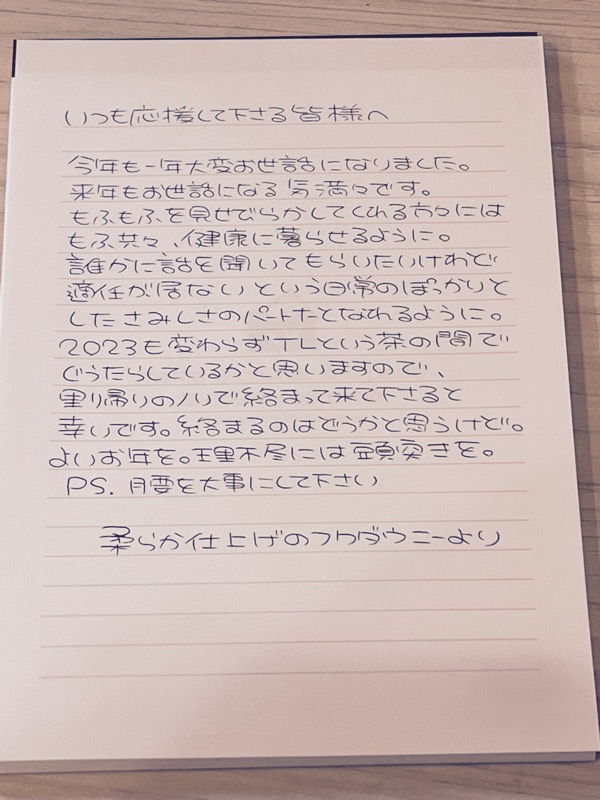 いつも応援して下さる皆様へ
今年も一年大変お世話になりました。
来年もお世話になる気満々です。
もふもふを見せびらかしてくれる方々には
もふ共々、健康に暮らせるように。
誰かに話を聞いてもらいたいけれど
適任が居ないという日常のぽっかりと
したさみしさのパートナーとなれるように。
2023も変わらずTLという茶の間で
ぐうたらしているかと思いますので、
里帰りのノリで絡まって来て下さると
幸いです。絡まるのはどうかと思うけど。
よいお年を。理不尽には頭突きを。
PS. 腰を大事にして下さい
柔らか仕上げのフワダウニーより